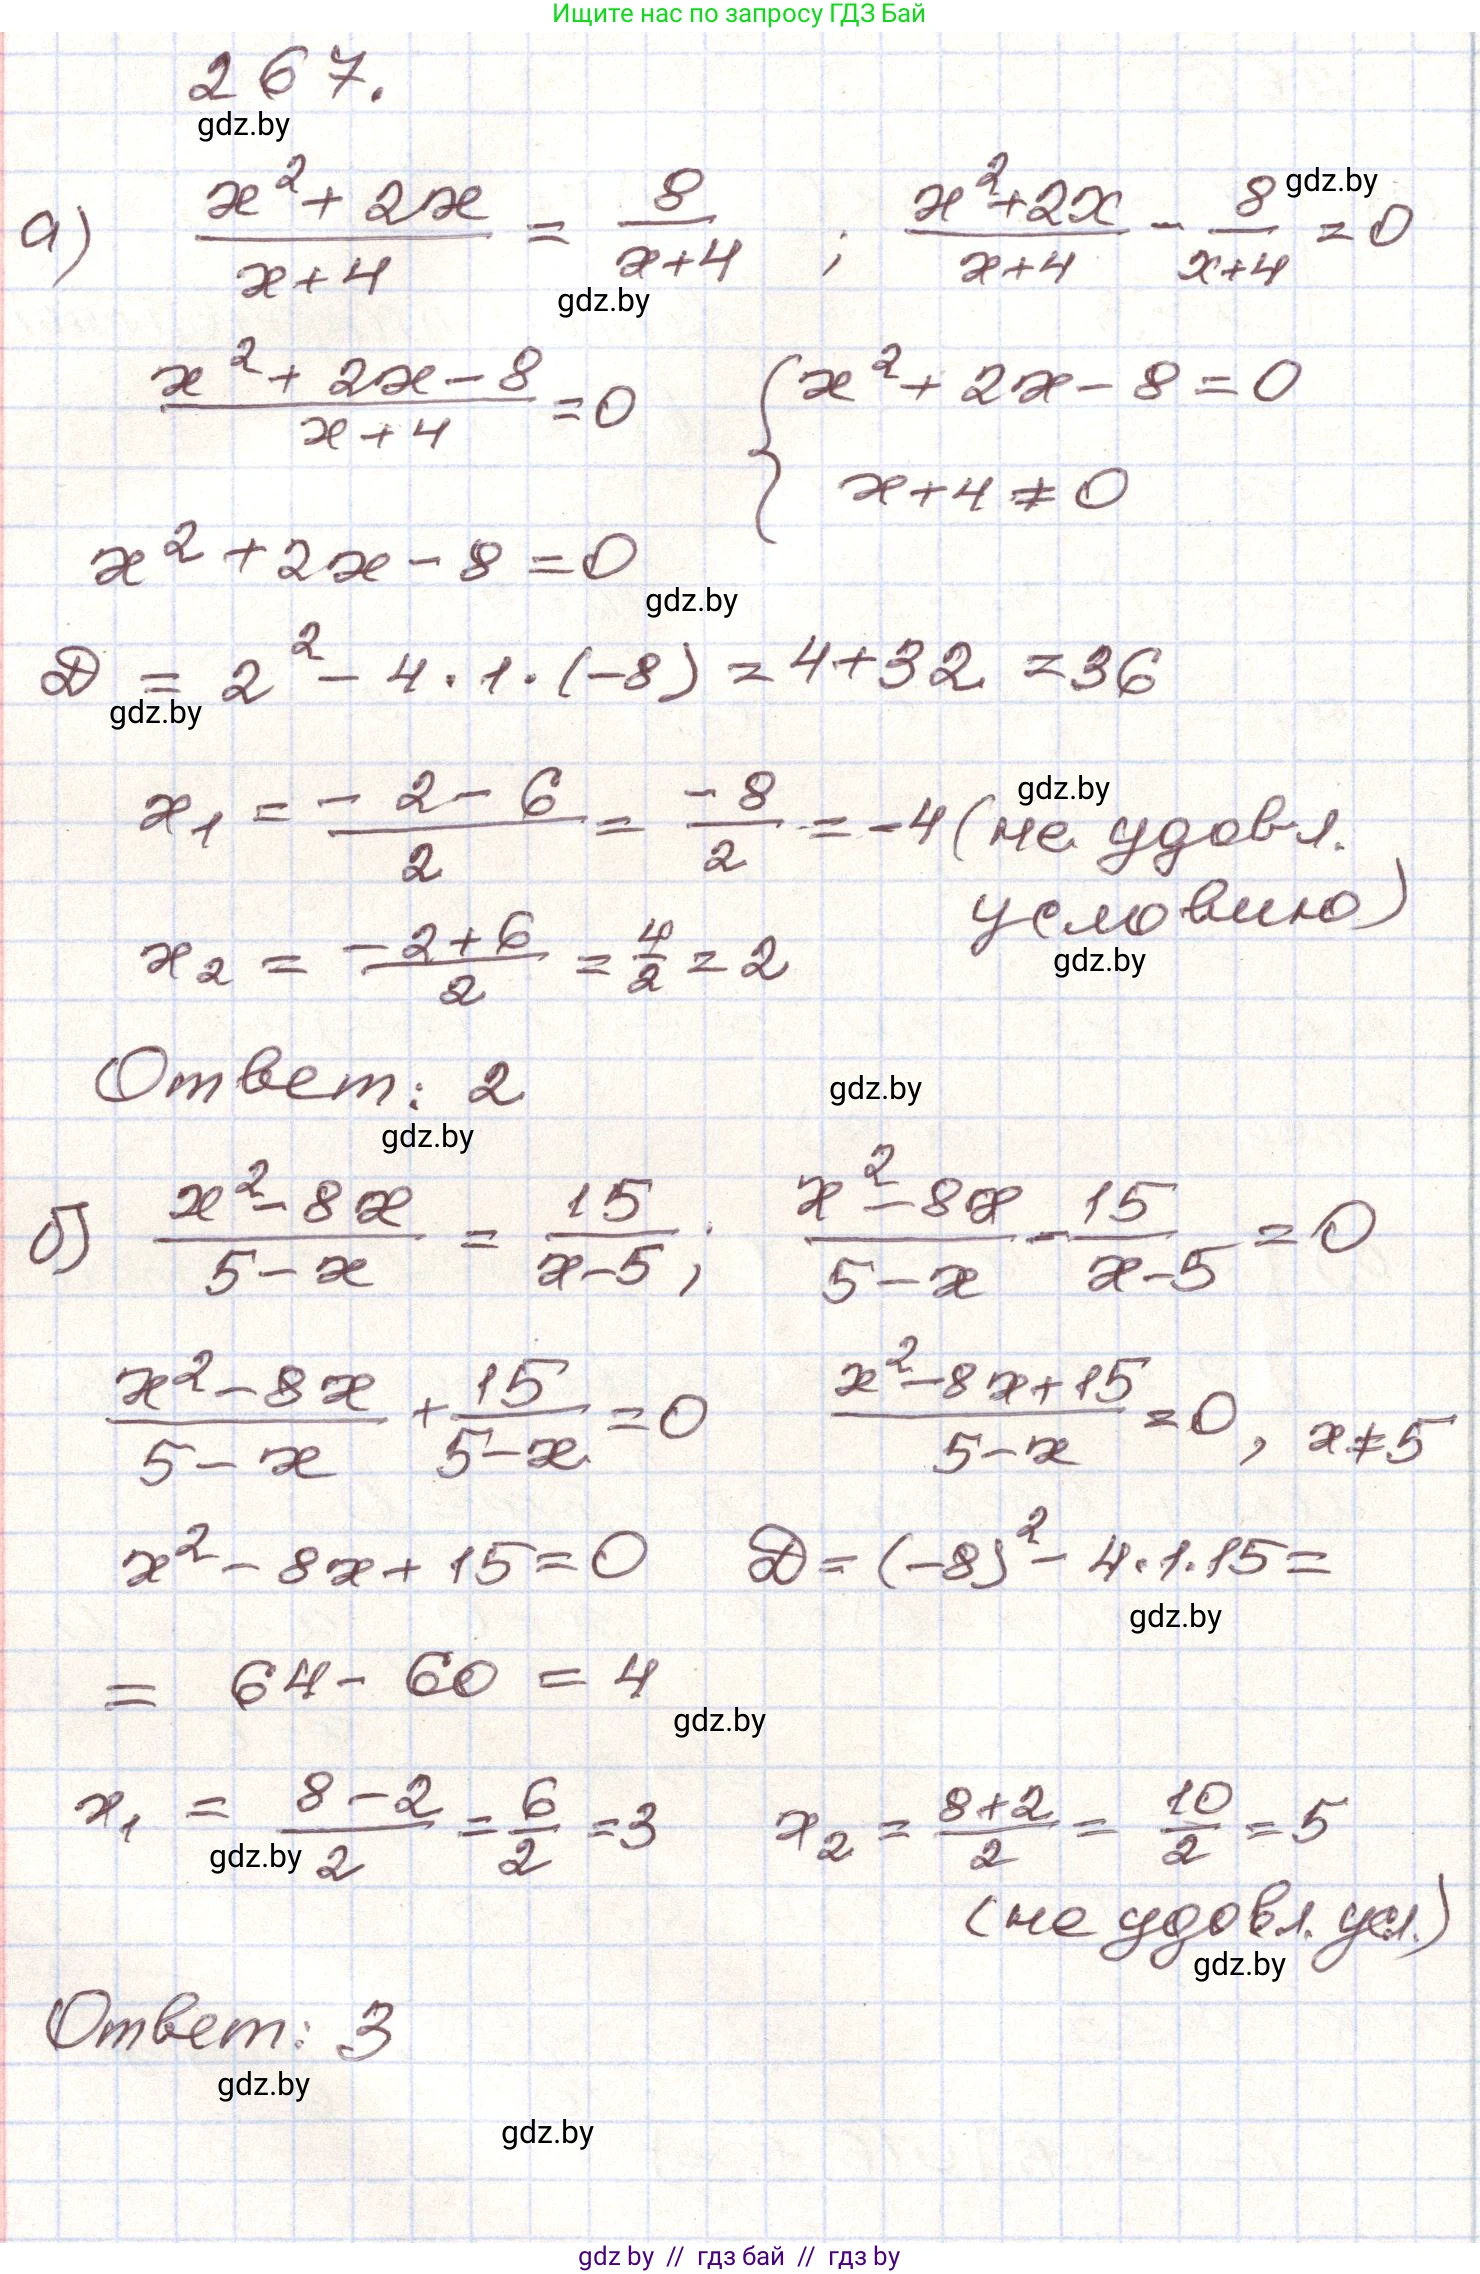 Ищите нас по запросу ГДЗ Бай
267.
gdz.by
а) (x²+2x)/(x+4) = 8/(x+4) ; (x²+2x)/(x+4) - 8/(x+4) = 0
gdz.by
gdz.by
(x²+2x-8)/(x+4) = 0 { x²+2x-8=0
x+4≠0
x²+2x-8=0
gdz.by
D = 2²-4·1·(-8) = 4+32 = 36
gdz.by
x₁ = (-2-6)/2 = -8/2 = -4 (не удовл.
gdz.by
условию)
gdz.by
x₂ = (-2+6)/2 = 4/2 = 2
Ответ: 2
gdz.by
gdz.by
б) (x²-8x)/(5-x) = 15/(x-5); (x²-8x)/(5-x) - 15/(x-5) = 0
(x²-8x)/(5-x) + 15/(5-x) = 0 (x²-8x+15)/(5-x) = 0, x≠5
x²-8x+15=0 D = (-8)²-4·1·15=
gdz.by
= 64-60 = 4
gdz.by
x₁ = (8-2)/2 = 6/2 = 3 x₂ = (8+2)/2 = 10/2 = 5
gdz.by
(не удовл. усл.)
gdz.by
Ответ: 3
gdz.by
gdz.by
gdz by // гдз бай // гдз by